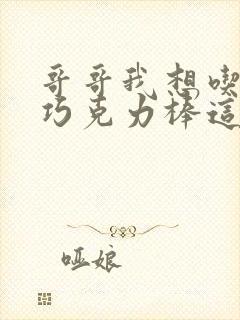 哥哥我想喫
巧克力棒這
哑娘